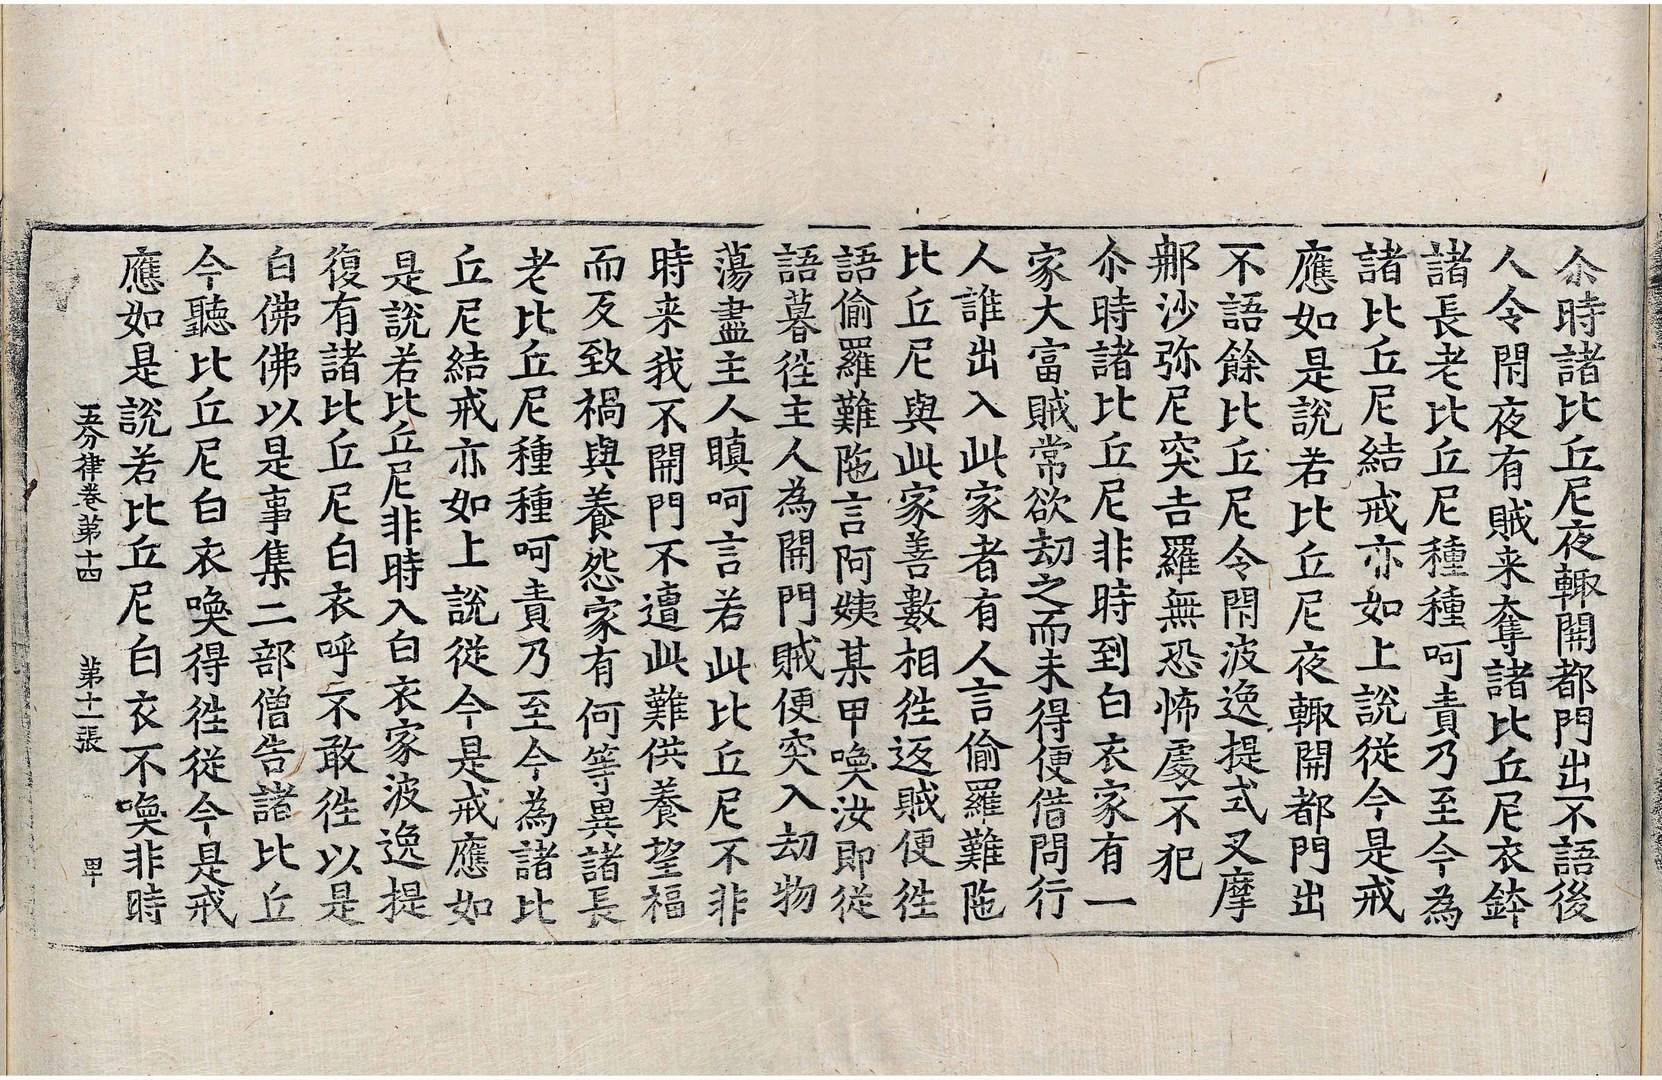 尒時諸比丘尼夜輙開都門出不語後
人令閇夜有賊来奪諸比丘尼衣鉢
諸長老比丘尼種種呵責乃至今為
諸比丘尼結戒亦如上說從今是戒
應如是說若比丘尼夜輙開都門出
不語餘比丘尼令閇波逸提式叉摩
那沙弥尼突吉羅無恐怖處不犯
尒時諸比丘尼非時到白衣家有一
家大富賊常欲劫之而未得便借問行
人誰出入此家者有人言偷羅難陁
比丘尼與此家善數相徃返賊便徃
語偷羅難陁言阿姨某甲喚汝即從
語暮徃主人為開門賊便突入劫物
蕩盡主人瞋呵言若此比丘尼不非
時来我不開門不遭此難供養望福
而反致禍與養怨家有何等異諸長
老比丘尼種種呵責乃至今為諸比
丘尼結戒亦如上說從今是戒應如
是說若比丘尼非時入白衣家波逸提
復有諸比丘尼白衣呼不敢徃以是
白佛佛以是事集二部僧告諸比丘
今聽比丘尼白衣喚得徃從今是戒
應如是說若比丘尼白衣不喚非時
五分律卷第十四 第十一張 甲